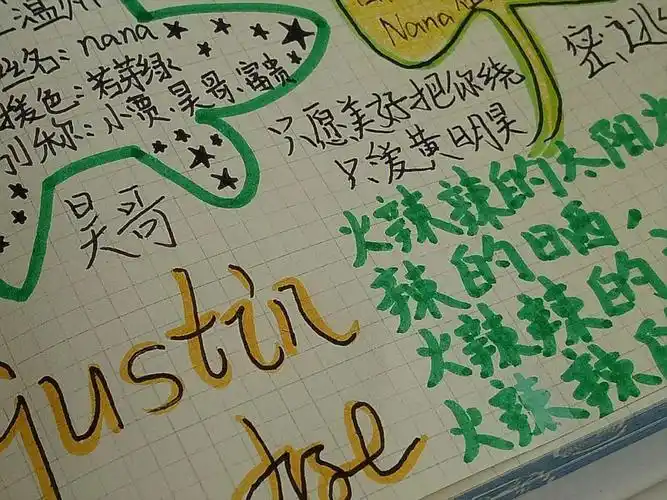 温州
nana
Nana
名: nana
援色: 若芽绿
别称: 小贾, 昊哥, 富贵
密逃
只愿美好把你绕
只爱黄明昊
昊哥
火辣辣的太阳
辣的日晒,
火辣辣的
火辣辣
justin